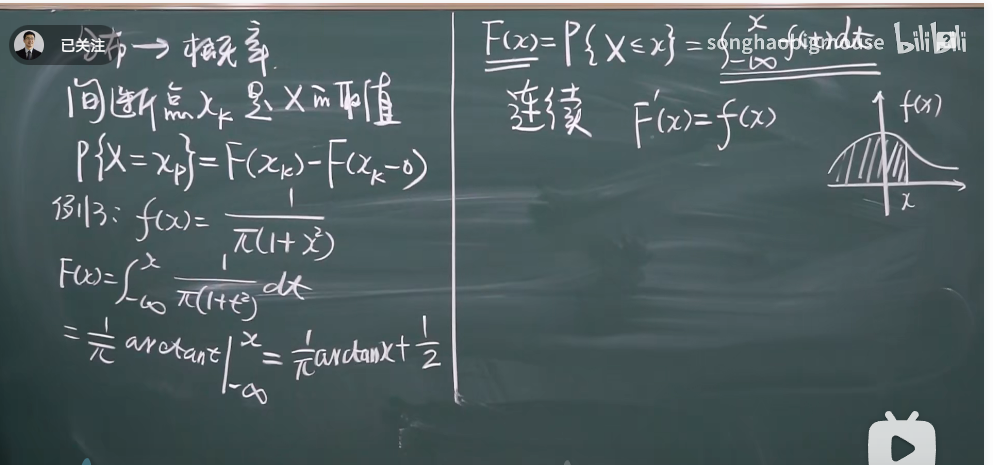 已关注
分布→概率
间断点xₖ是X的取值
P{X=xₚ}=F(xₖ)-F(xₖ-0)
例3: f(x)= 1/(π(1+x²))
F(x)=∫_{-∞}^{x} 1/(π(1+t²)) dt
= 1/π arctant|_{-∞}^{x} = 1/π arctanx+1/2
F(x)=P{X≤x}=∫_{-∞}^{x} f(t)dt
songhaopigmouse bilibili
连续 F'(x)=f(x)
f(x)
x